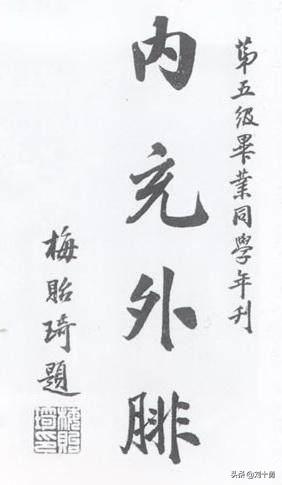 第五级畢業同學年刊
内充外腓
梅貽琦題
梅貽琦印
头条